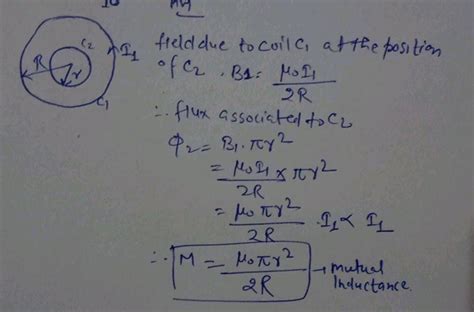 R
C2
r
I1
C1
field due to coil C1 at the position
of C2 . B1 = μ0I1/2R
∴ flux associated to C2
Φ2 = B1 . πr²
= μ0I1/2R × πr²
= μ0πr²/2R . I1 ∝ I1
∴ M = μ0πr²/2R → mutual
Inductance.